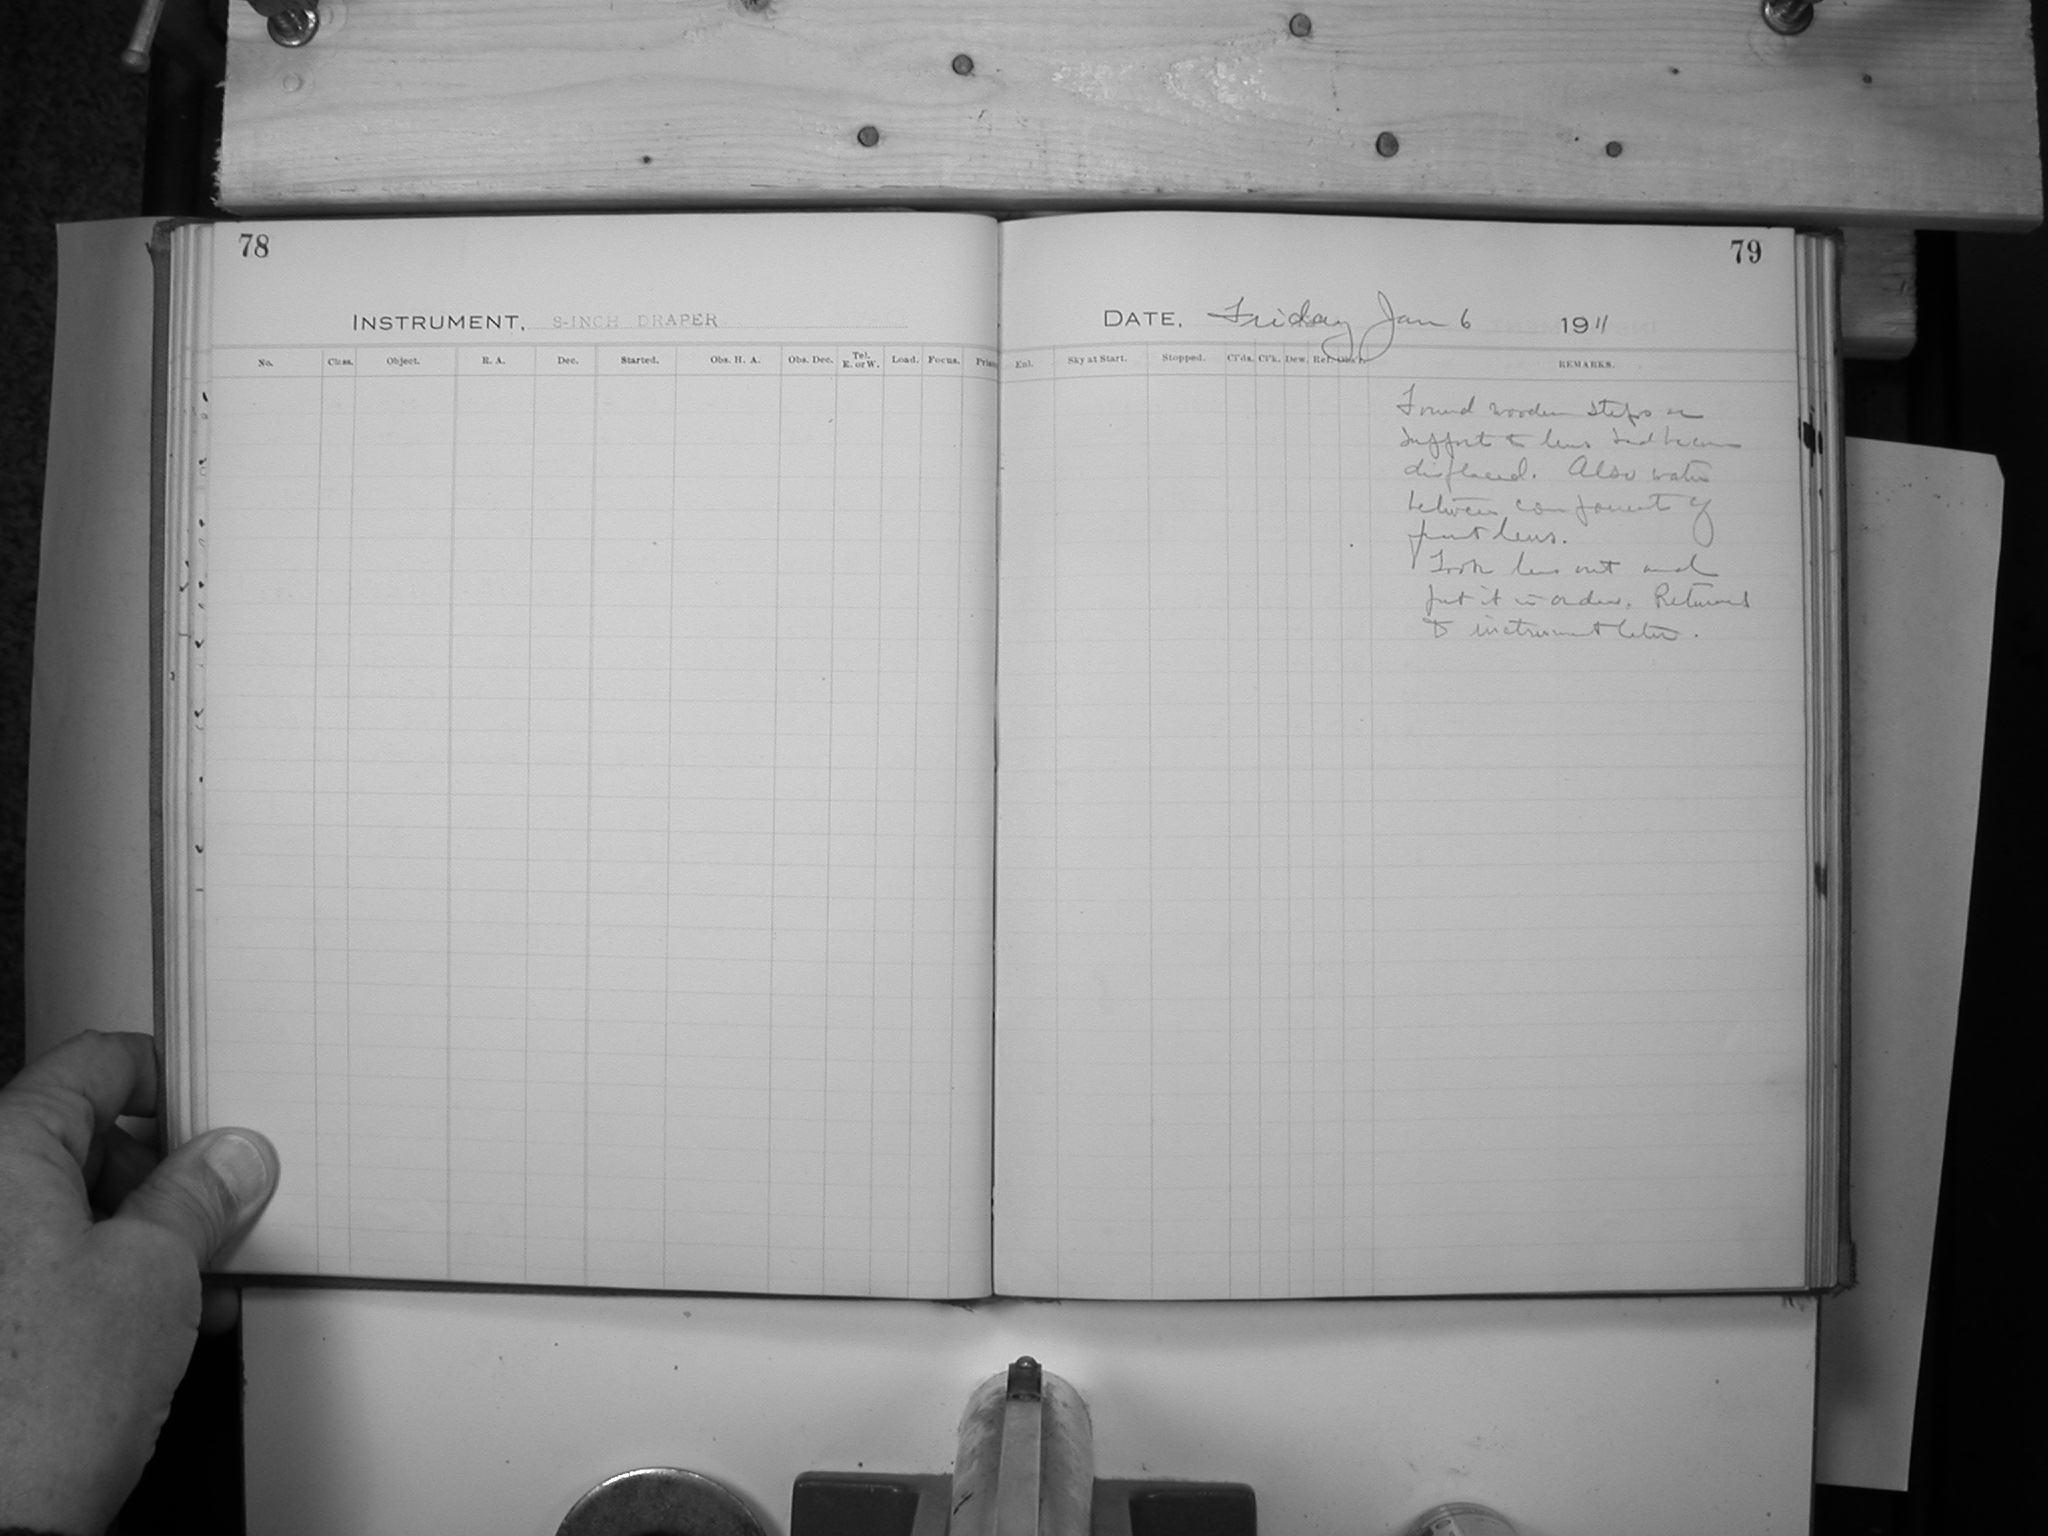 78
79
INSTRUMENT, 8-INCH DRAPER
DATE, Friday Jan 6 1911
No. Class. Object. R. A. Dec. Started. Obs. H. A. Obs. Dec. Tel. E. or W. Load. Focus.
Enl. Sky at Start. Stopped. Cl'ds. Cl'k. Dew. Ref. Obs'r. REMARKS.
Found wooden steps or
support to lens had become
displaced. Also water
between components of
front lens.
Took lens out and
put it in order. Returned
to instrument later.